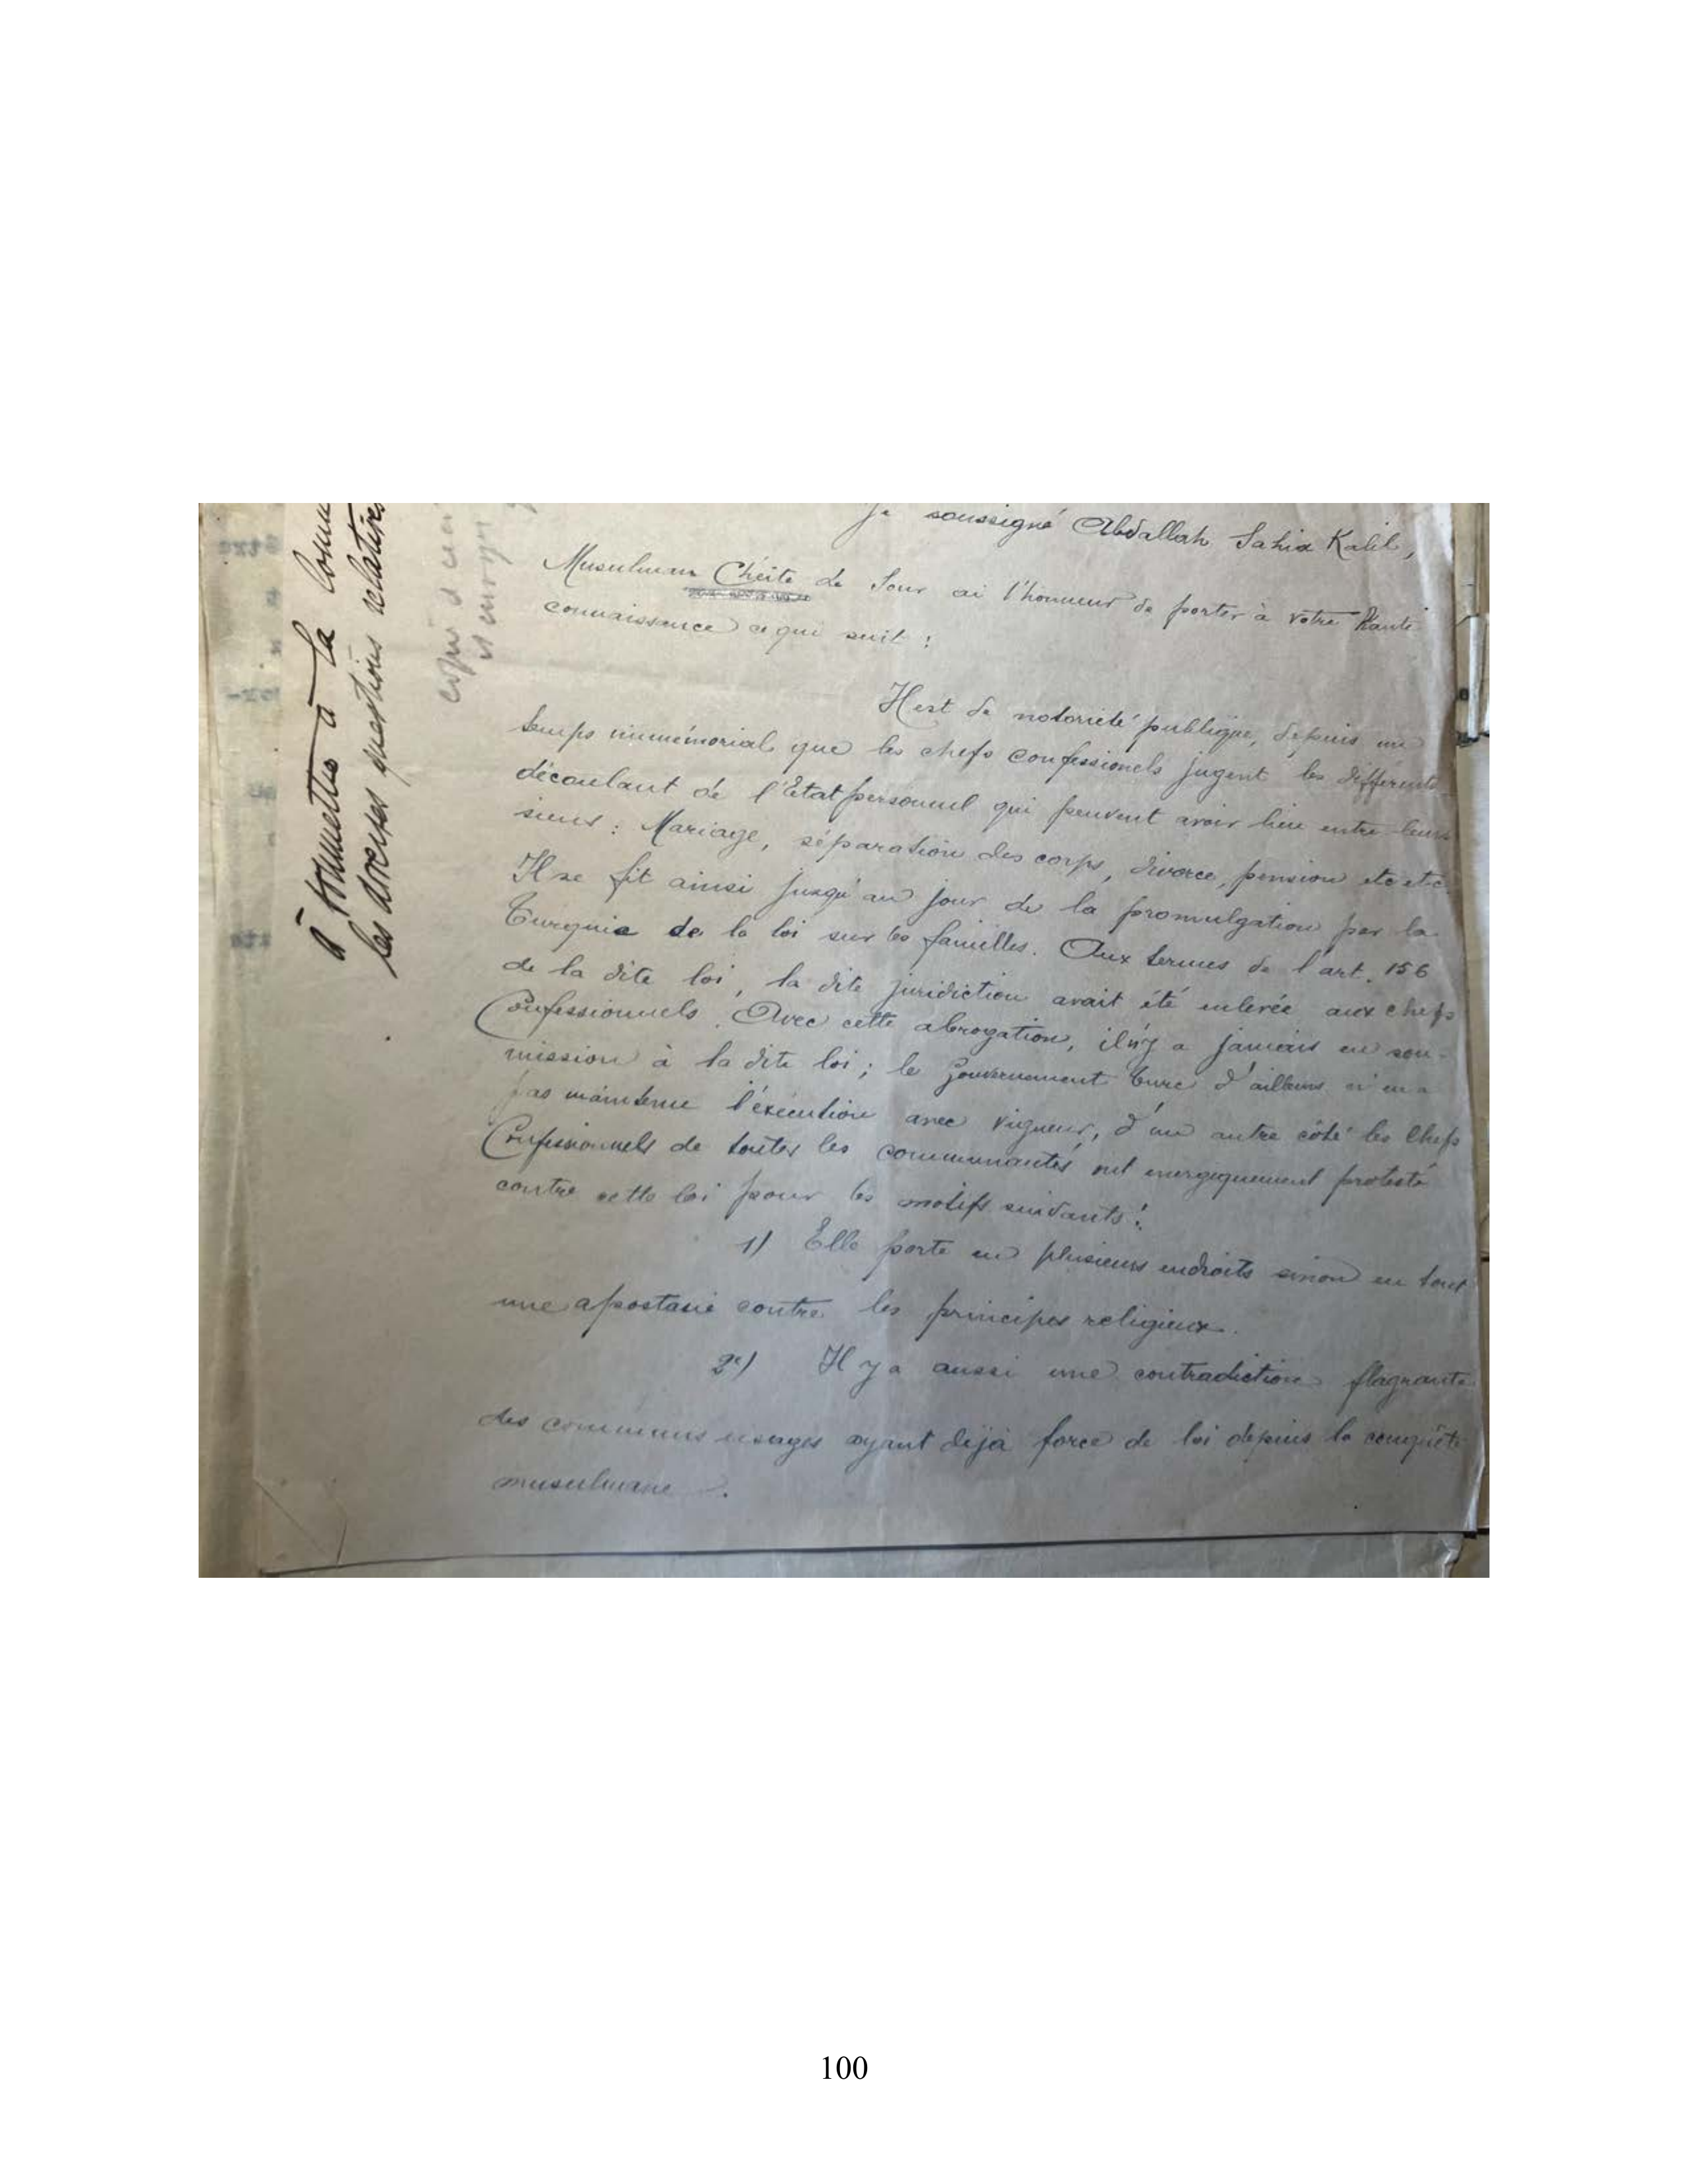 Je soussigné Abdallah Sahia Kalil,
Musulman Chéite de Sour ai l'honneur de porter à votre Haute
connaissance ce qui suit :
Il est de notoriété publique, depuis un
temps immémorial que les chefs confessionels jugent les différents
découlant de l'Etat personnel qui peuvent avoir lieu entre leurs
siens : Mariage, séparation des corps, divorce, pension etc etc
Il se fit ainsi jusqu'au jour de la promulgation par la
Turquie de la loi sur les familles. Aux termes de l'art. 156
de la dite loi, la dite juridiction avait été enlevée aux chefs
Confessionnels. Avec cette abrogation, il n'y a jamais eu sou-
mission à la dite loi ; le Gouvernement Turc d'ailleurs n'en a
pas maintenu l'éxécution avec vigueur, d'un autre côté les Chefs
Confessionnels de toutes les communautés ont energiquement protesté
contre cette loi pour les motifs suivants :
1) Elle porte en plusieurs endroits sinon en tout
une apostasie contre les principes religieux.
2º) Il y a aussi une contradiction flagrante
des communs usages ayant déjà force de loi depuis la conquête
musulmane.
à soumettre à la Comm
les diverses questions relatives
copie d
100